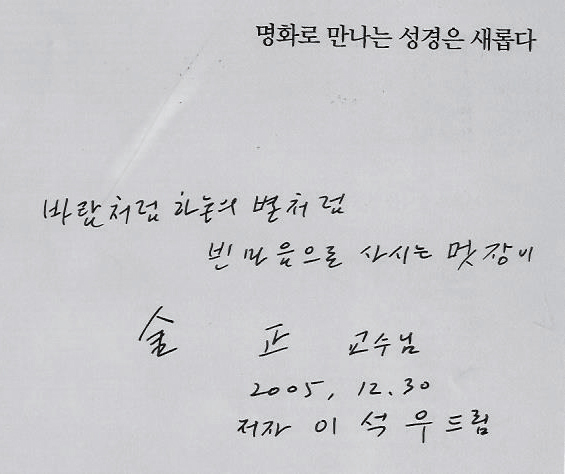 명화로 만나는 성경은 새롭다
바람처럼 하늘의 별처럼
빈 마음으로 사시는 멋장이
金 正 교수님
2005, 12.30
저자 이 석 우 드림